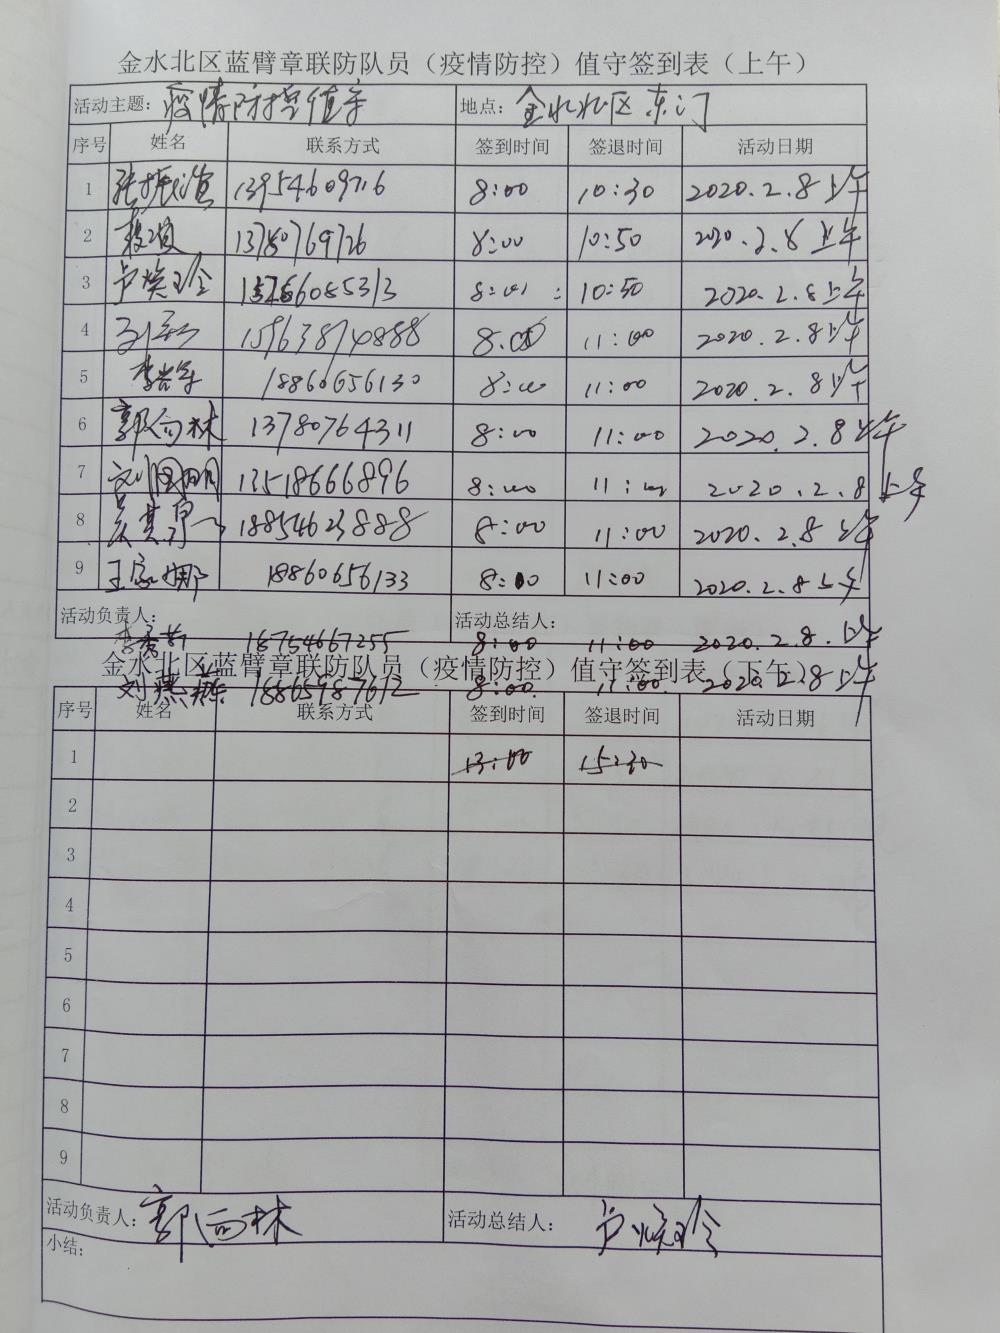 金水北区蓝臂章联防队员（疫情防控）值守签到表（上午）
活动主题：疫情防控值守 地点：金水北区东门
序号 姓名 联系方式 签到时间 签退时间 活动日期
1 张振滨 13954609716 8:00 10:30 2020.2.8上午
2 13780769726 8:00 10:50 2020.2.8上午
3 卢焕玲 15266085313 8:00 10:50 2020.2.8上午
4 15963874888 8:00 11:00 2020.2.8上午
5 18860656130 8:00 11:00 2020.2.8上午
6 郭向林 13780764311 8:00 11:00 2020.2.8上午
7 刘国明 13518666896 8:00 11:00 2020.2.8上午
8 18854623888 8:00 11:00 2020.2.8上午
9 王家娜 18860656133 8:00 11:00 2020.2.8上午
活动负责人： 活动总结人：
李秀芳 18754667255 8:00 11:00 2020.2.8.上午
金水北区蓝臂章联防队员（疫情防控）值守签到表（下午）
刘燕燕 18865987612 8:00 11:00 2020.2.8上午
序号 姓名 联系方式 签到时间 签退时间 活动日期
1 13:00 15:30
2
3
4
5
6
7
8
9
活动负责人：郭向林 活动总结人：卢焕玲
小结：